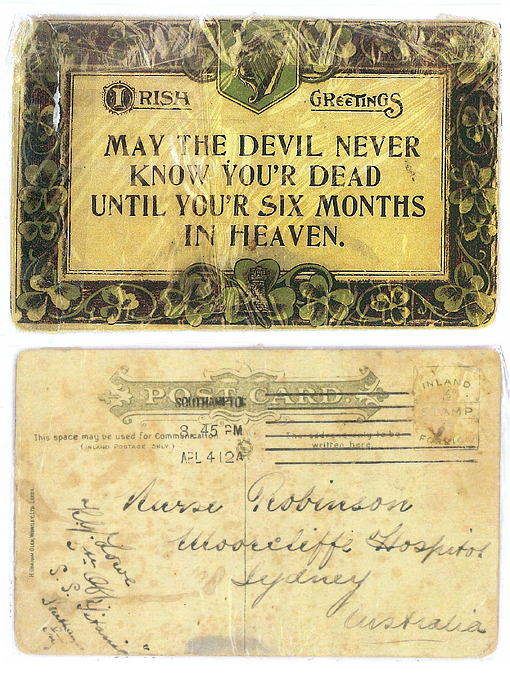 IRISH GREETINGS
MAY THE DEVIL NEVER
KNOW YOU'R DEAD
UNTIL YOU'R SIX MONTHS
IN HEAVEN.
POST CARD.
SOUTHAMPTON
8.45 PM
APL 4 12
This space may be used for Communication
(INLAND POSTAGE ONLY.)
The address only to be
written here.
INLAND
STAMP
FOREIGN
Nurse Robinson
Moorcliffe Hospital
Sydney
Australia
Lowe
Off Titanic
S.S.